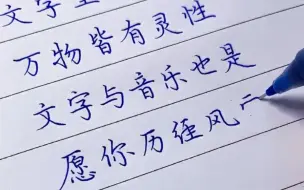 文字
万物皆有灵性
文字与音乐也是
愿你历经风